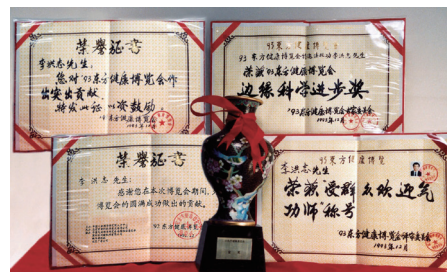 荣誉证书
李洪志先生:
您对'93东方健康博览会作
出突出贡献。
特发此证以资鼓励。
'93东方健康博览会
1993年12月
93东方健康博览会
荣获'93东方健康博览会
边缘科学进步奖
'93东方健康博览会评审委员会
1993年12月
荣誉证书
李洪志 先生:
感谢您在本次博览会期间,
博览会的圆满成功做出的贡献。
'93东方健康博览
93东方健康博览
李洪志先生:
荣获受群众欢迎气
功师称号
'93东方健康博览会评审委员会
1993年12月